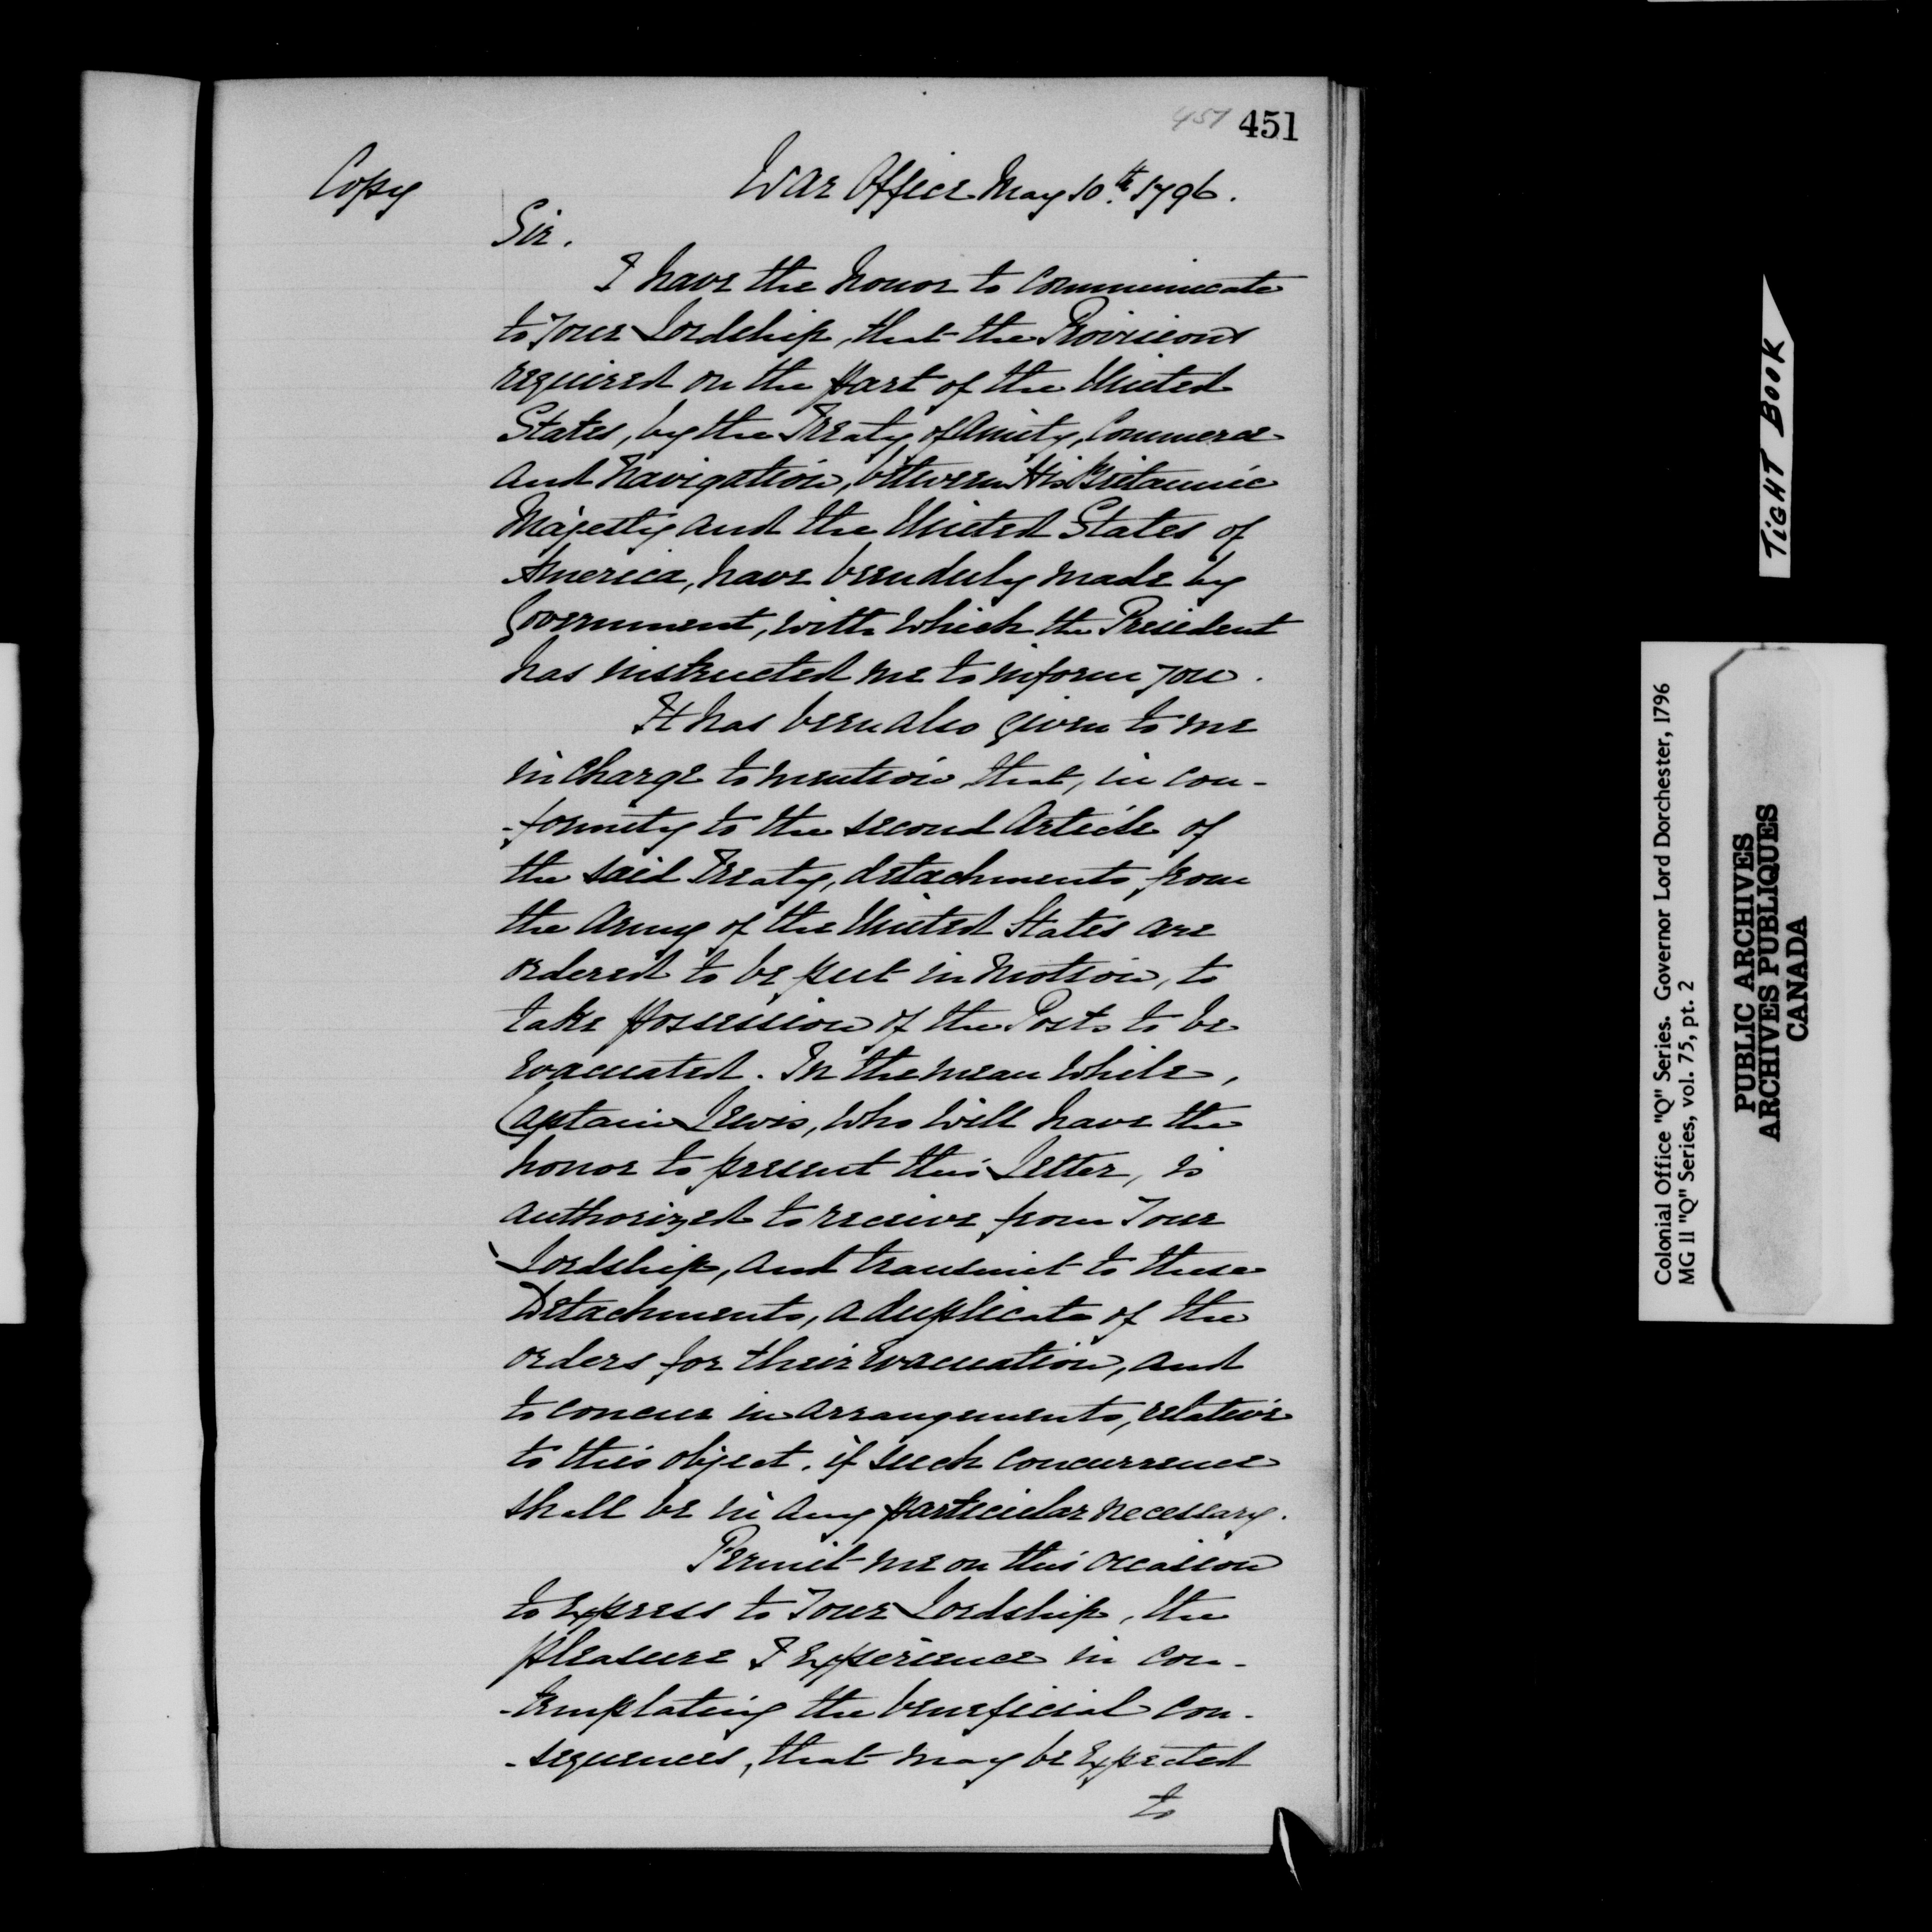 457 451
Copy
War Office May 10th. 1796.
Sir.
I have the honor to communicate
to Your Lordship, that the Provisions
required on the part of the United
States, by the Treaty of Amity, Commerce
and Navigation, between His Britannic
Majesty and the United States of
America, have been duly made by
Government, with which the President
has instructed me to inform you.
It has been also given to me
in charge to mention that, in con-
-formity to the second Article of
the said Treaty, detachments from
the Army of the United States are
ordered to be put in motion, to
take possession of the Posts to be
evacuated. In the mean while,
Captain Lewis, who will have the
honor to present this Letter, is
authorized to receive from Your
Lordship, and transmit to these
Detachments, a duplicate of the
orders for their evacuation, and
to concur in arrangements, relative
to this object. if such concurrence
shall be in any particular necessary.
Permit me on this occasion
to express to Your Lordship, the
pleasure I experience in con-
-templating the beneficial con-
-sequences, that may be expected
to
TIGHT BOOK
Colonial Office "Q" Series. Governor Lord Dorchester, 1796
MG 11 "Q" Series, vol. 75, pt. 2
PUBLIC ARCHIVES
ARCHIVES PUBLIQUES
CANADA